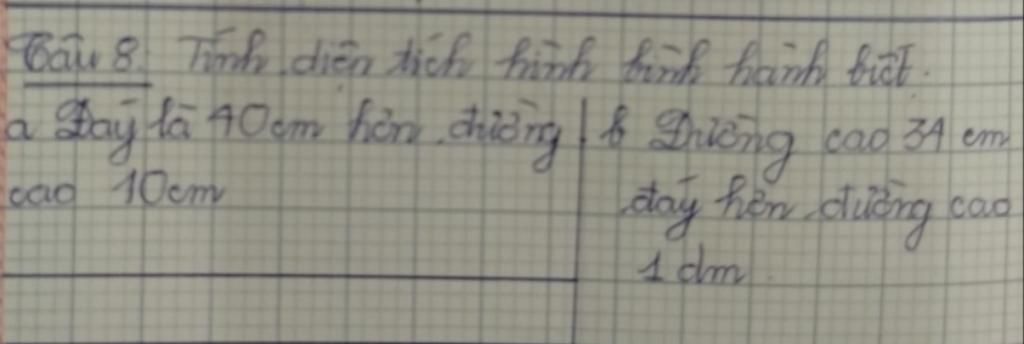 Bài 8. Tính diện tích hình bình hành biết.
a Đáy là 40cm hơn đường
cao 10cm
b Đường cao 34 cm
đáy hơn đường cao
1 dm.